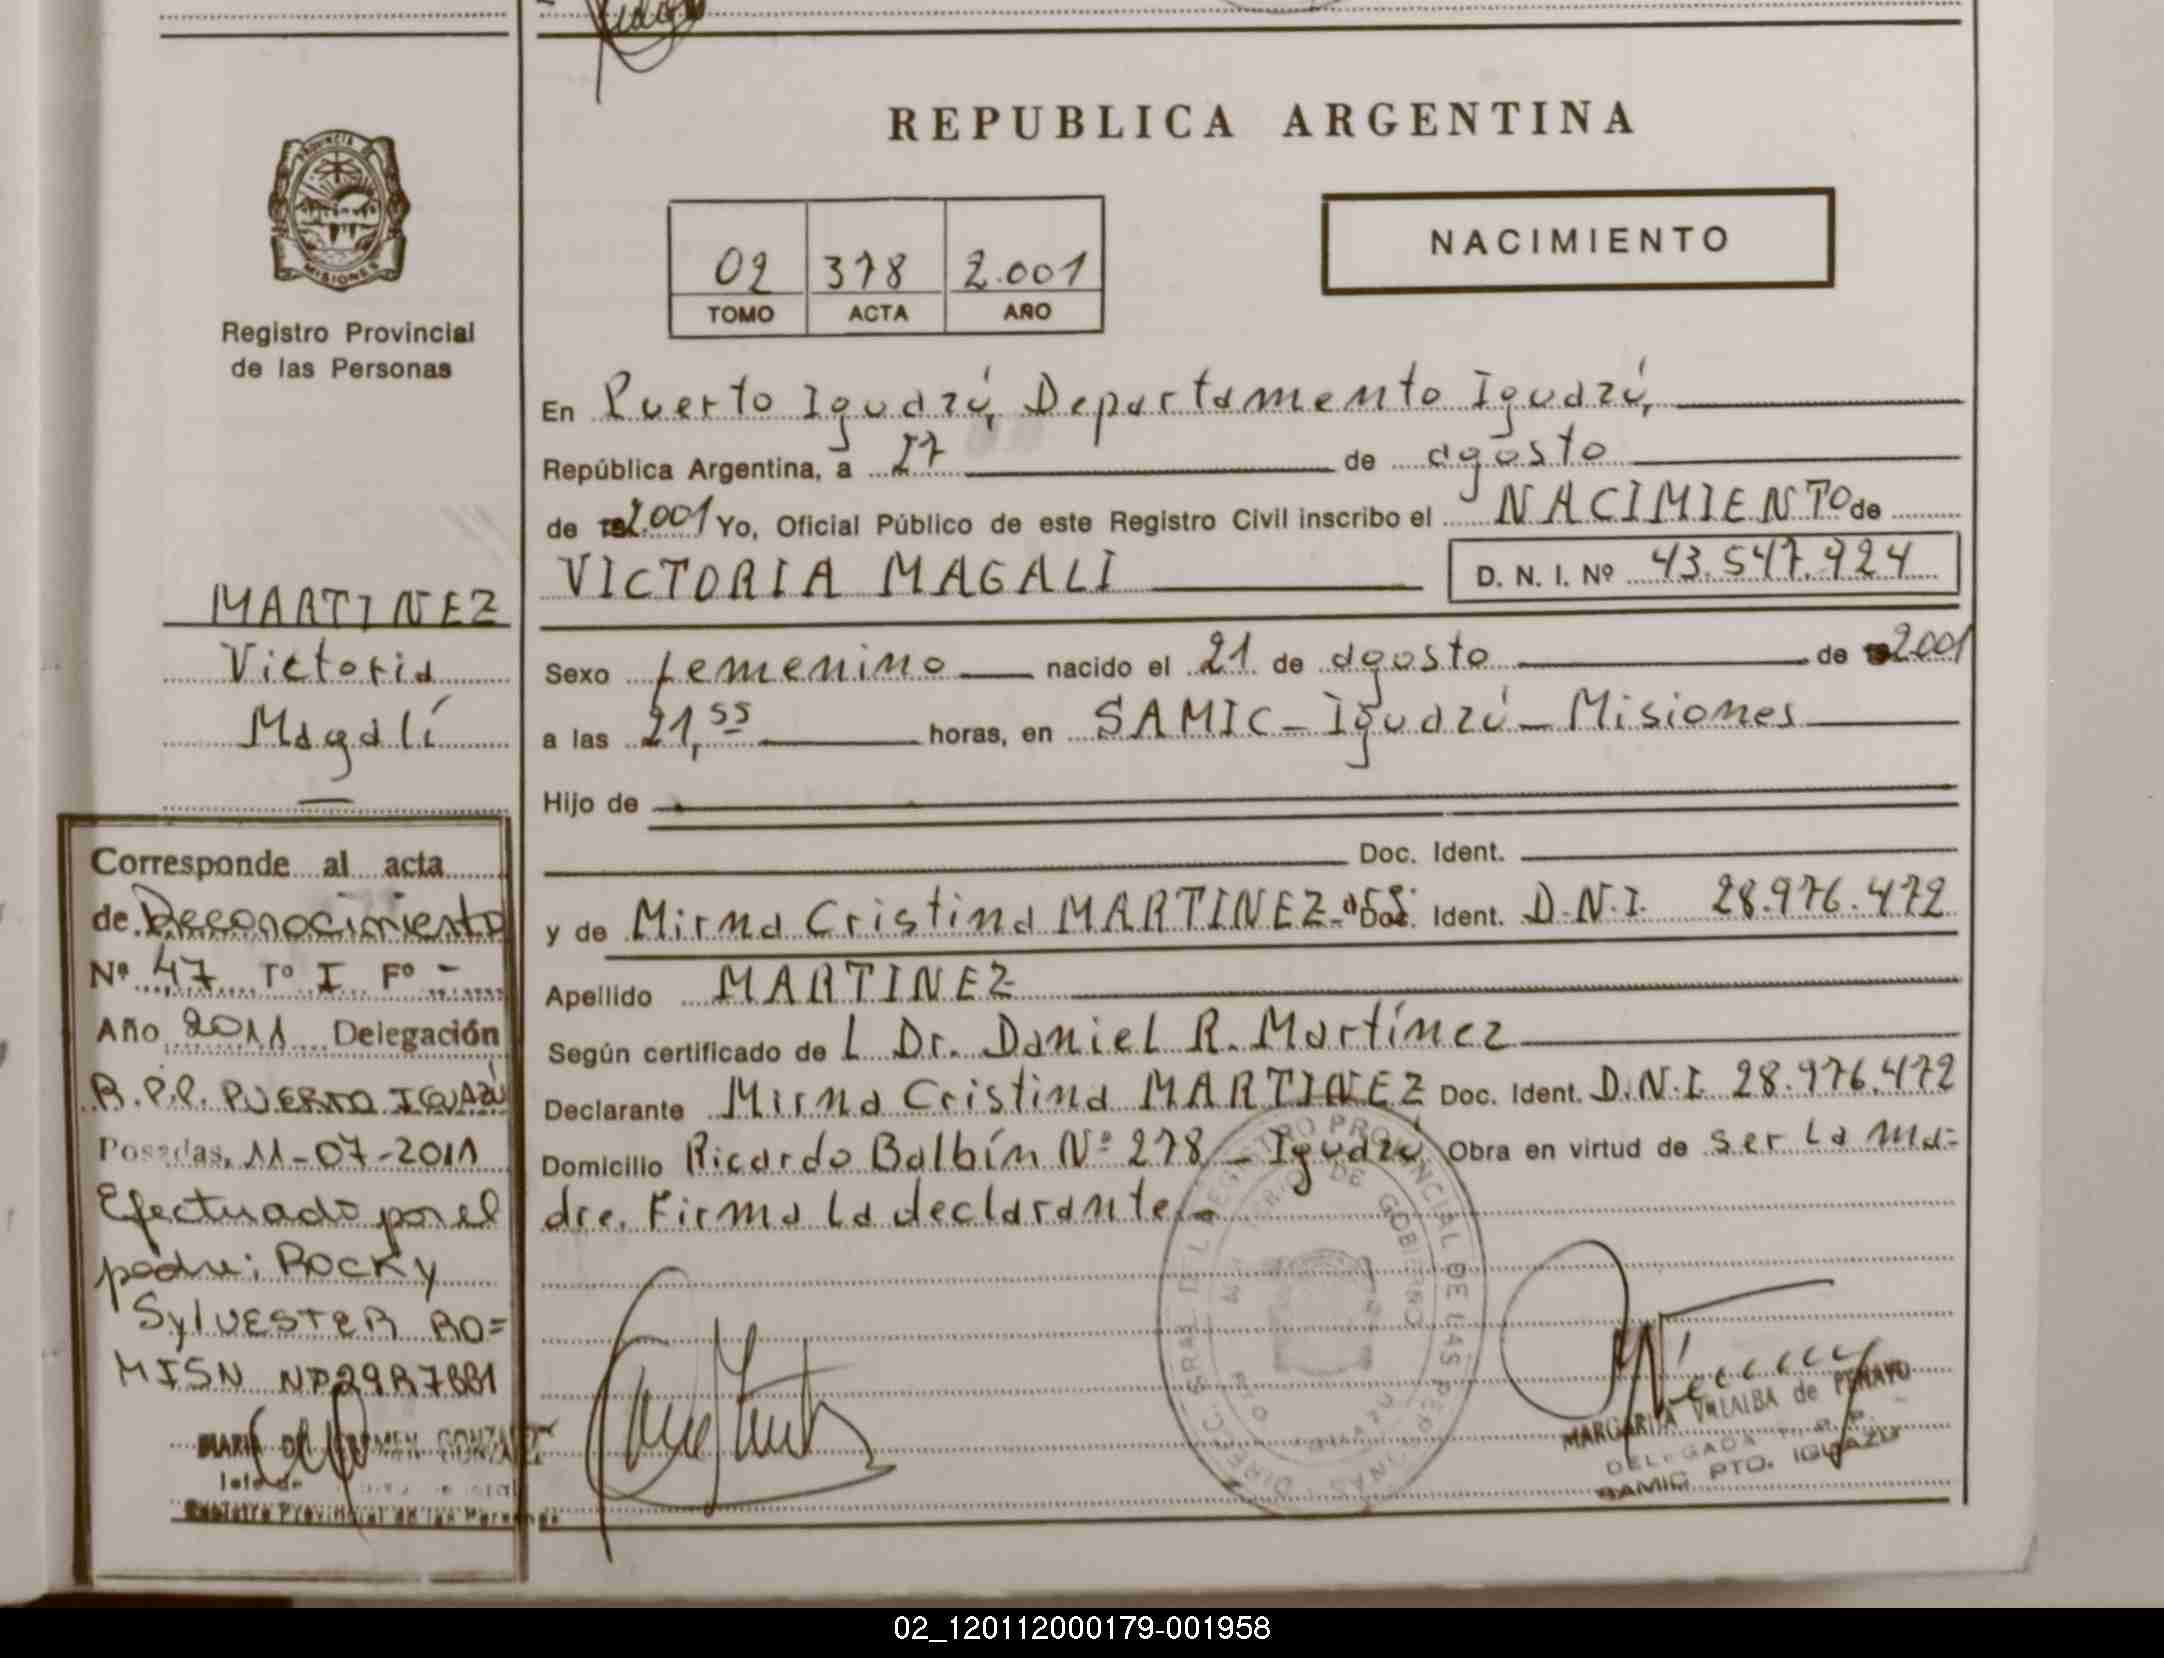 PROVINCIA DE
MISIONES
Registro Provincial
de las Personas
MARTINEZ
Victoria
Magalí
Corresponde al acta
de Reconocimiento
Nº 47 Tº I Fº -
Año 2011 Delegación
R.P.P. PUERTO IGUAZÚ
Posadas, 11-07-2011
Efectuado por el
padre: ROCKY
SYLVESTER RO=
MISN
MARIA DEL CARMEN GONZALEZ
Registro Provincial de las Personas
REPUBLICA ARGENTINA
02 378 2.001
TOMO ACTA AÑO
NACIMIENTO
En Puerto Iguazú, Departamento Iguazú,
República Argentina, a 27 de agosto
de 2.001 Yo, Oficial Público de este Registro Civil inscribo el NACIMIENTO de
VICTORIA MAGALI D. N. I. Nº 43.547.924
Sexo femenino nacido el 21 de agosto de 2001
a las 21,55 horas, en SAMIC - Iguazú - Misiones
Hijo de
Doc. Ident.
y de Mirna Cristina MARTINEZ Doc. Ident. D.N.I. 28.976.472
Apellido MARTINEZ
Según certificado de L Dr. Daniel R. Martínez
Declarante Mirna Cristina MARTINEZ Doc. Ident. D.N.I. 28.976.472
Domicilio Ricardo Balbín Nº 278 - Iguazú Obra en virtud de ser la ma=
dre. Firma la declarante.
DIREC. GRAL DEL REGISTRO PROVINCIAL DE LAS PERSONAS
DE GOBIERNO
MARGARITA VILLALBA de PENAYO
DELEGADA R. P. P.
SAMIC PTO. IGUAZU
02_120112000179-001958